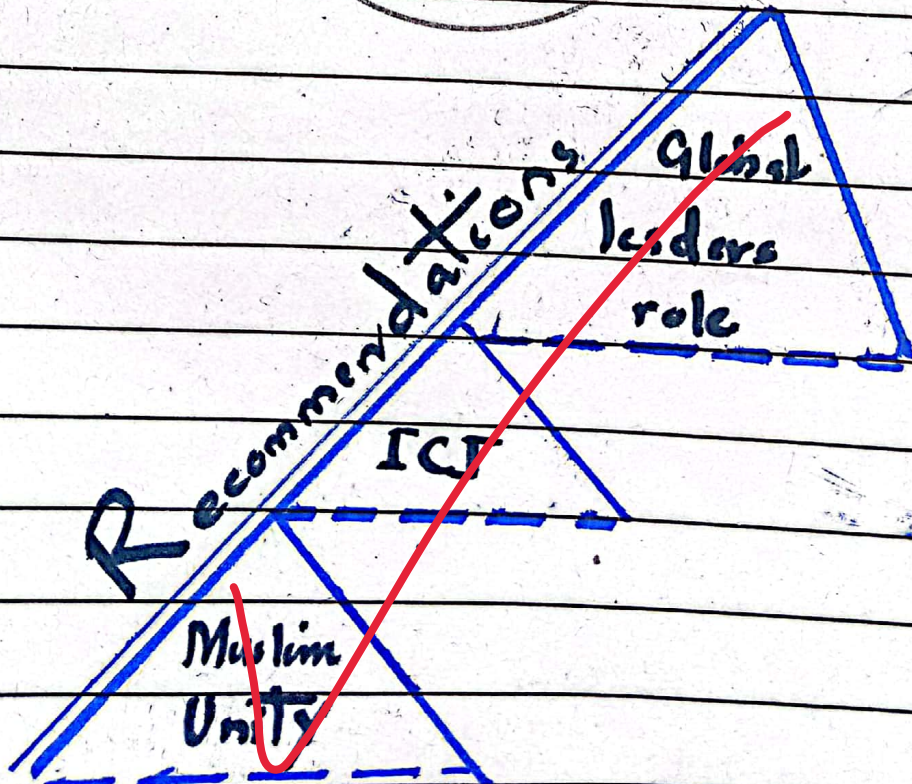 Recommendations
Global
leaders
role
ICJ
Muslim
Unity